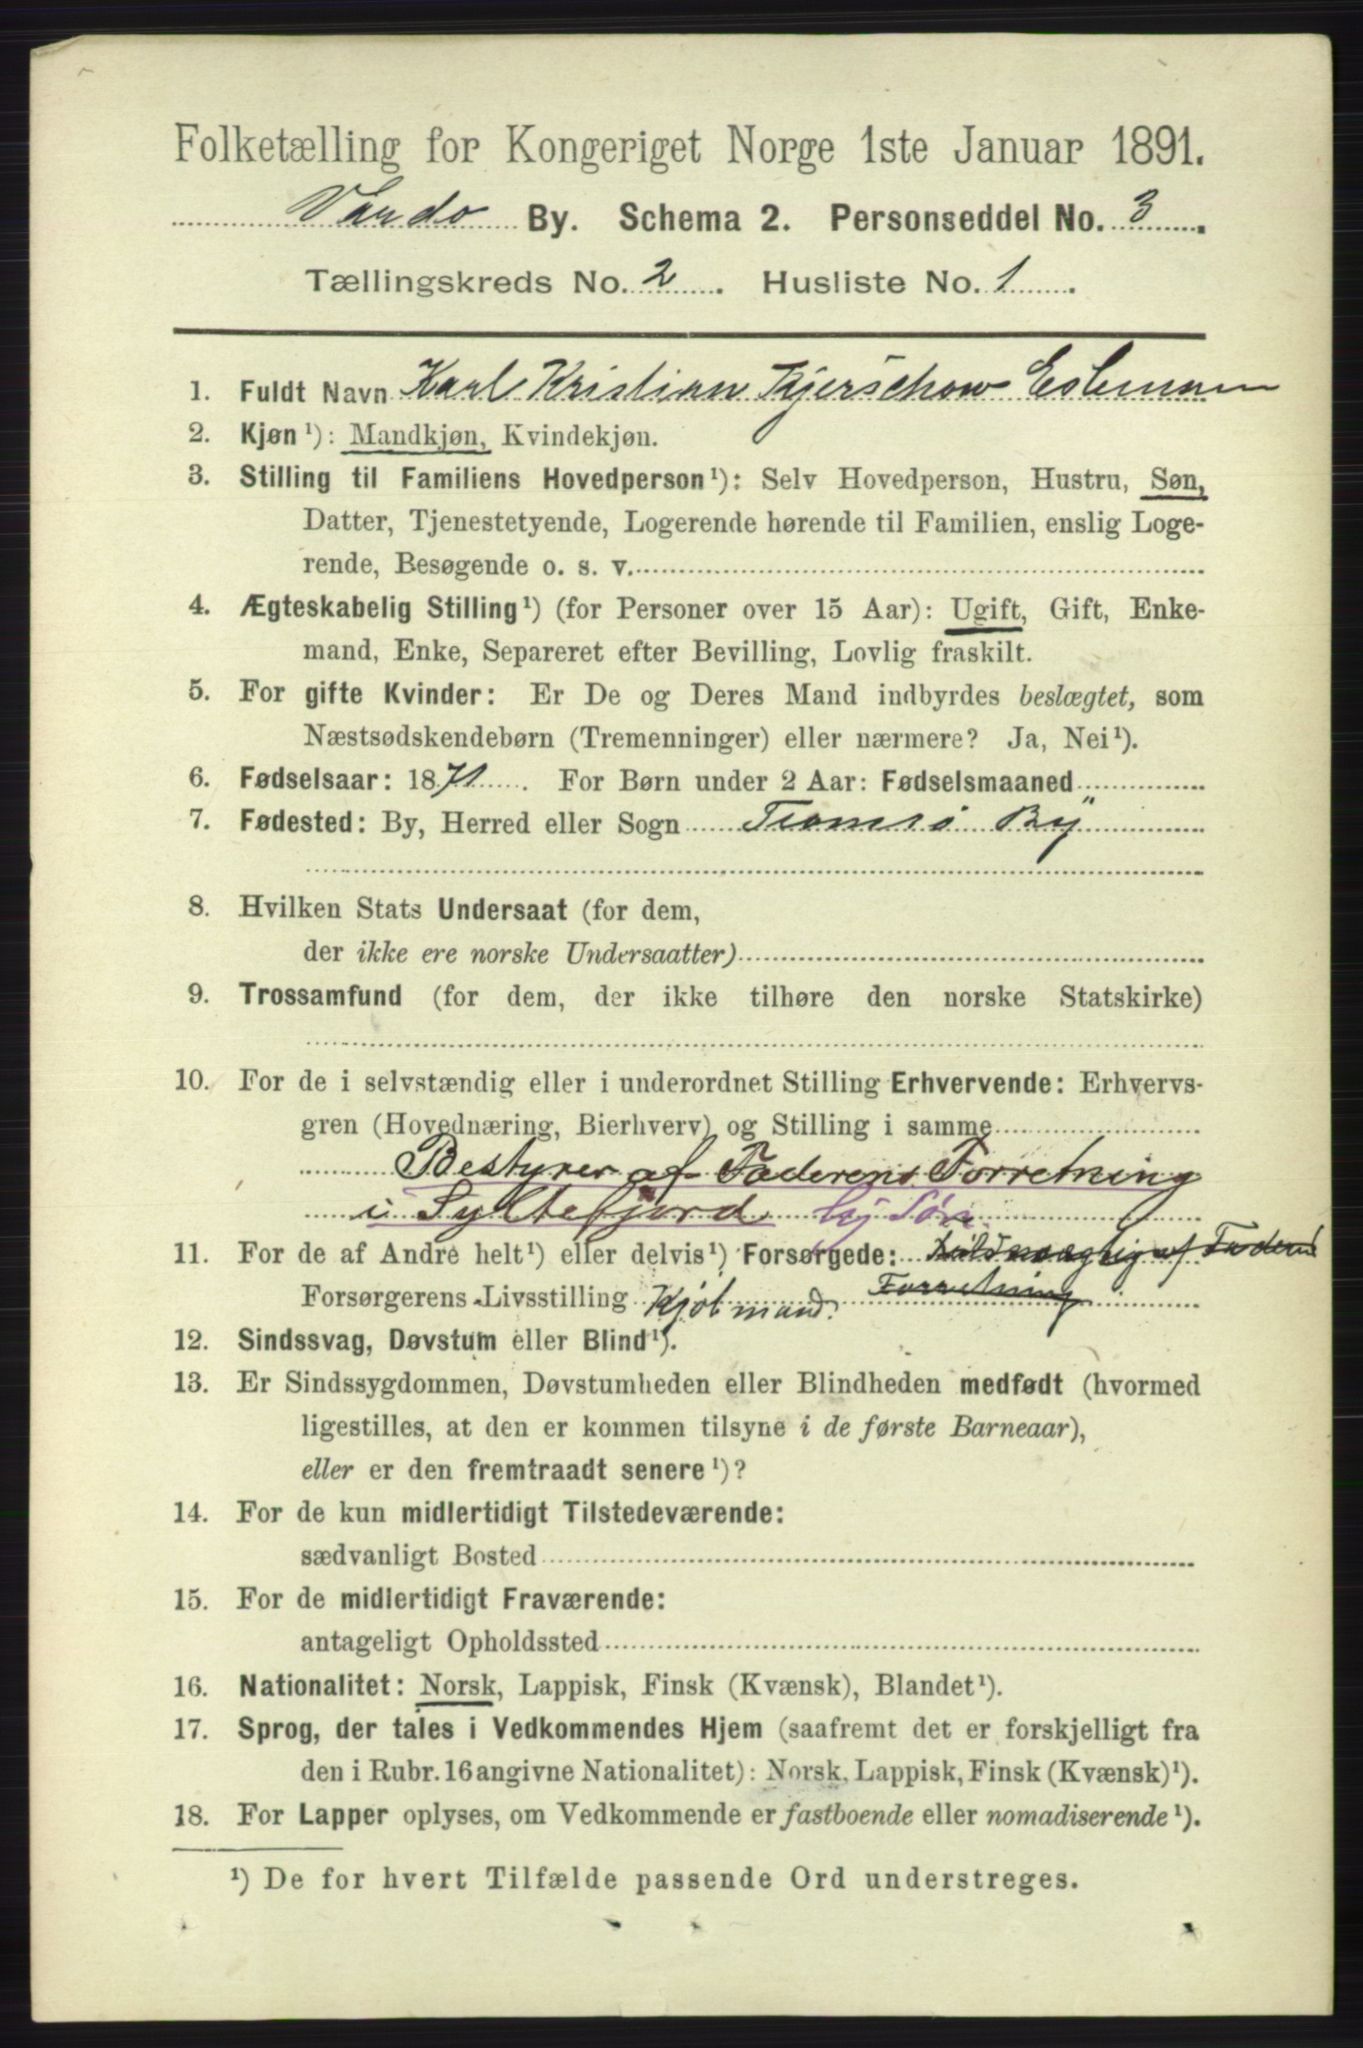 Folketælling for Kongeriget Norge 1ste Januar 1891.
Vardo By. Schema 2. Personseddel No. 3.
Tællingskreds No. 2. Husliste No. 1.
1. Fuldt Navn Karl Kristian Kjerschow Esbensen
2. Kjøn¹): Mandkjøn, Kvindekjøn.
3. Stilling til Familiens Hovedperson¹): Selv Hovedperson, Hustru, Søn,
Datter, Tjenestetyende, Logerende hørende til Familien, enslig Loge-
rende, Besøgende o. s. v.
4. Ægteskabelig Stilling¹) (for Personer over 15 Aar): Ugift, Gift, Enke-
mand, Enke, Separeret efter Bevilling, Lovlig fraskilt.
5. For gifte Kvinder: Er De og Deres Mand indbyrdes beslægtet, som
Næstsødskendebørn (Tremenninger) eller nærmere? Ja, Nei¹).
6. Fødselsaar: 1871. For Børn under 2 Aar: Fødselsmaaned
7. Fødested: By, Herred eller Sogn Tromsö By
8. Hvilken Stats Undersaat (for dem,
der ikke ere norske Undersaatter)
9. Trossamfund (for dem, der ikke tilhøre den norske Statskirke)
10. For de i selvstændig eller i underordnet Stilling Erhvervende: Erhvervs-
gren (Hovednæring, Bierhverv) og Stilling i samme
Bestyrer af Faderens Forretning
i Syltefjord hj Søn
11. For de af Andre helt¹) eller delvis¹) Forsørgede: af Faderens
Forsørgerens Livsstilling Kjöbmand. Forretning
12. Sindssvag, Døvstum eller Blind¹).
13. Er Sindssygdommen, Døvstumheden eller Blindheden medfødt (hvormed
ligestilles, at den er kommen tilsyne i de første Barneaar),
eller er den fremtraadt senere¹)?
14. For de kun midlertidigt Tilstedeværende:
sædvanligt Bosted
15. For de midlertidigt Fraværende:
antageligt Opholdssted
16. Nationalitet: Norsk, Lappisk, Finsk (Kvænsk), Blandet¹).
17. Sprog, der tales i Vedkommendes Hjem (saafremt det er forskjelligt fra
den i Rubr. 16 angivne Nationalitet): Norsk, Lappisk, Finsk (Kvænsk)¹).
18. For Lapper oplyses, om Vedkommende er fastboende eller nomadiserende¹).
¹) De for hvert Tilfælde passende Ord understreges.